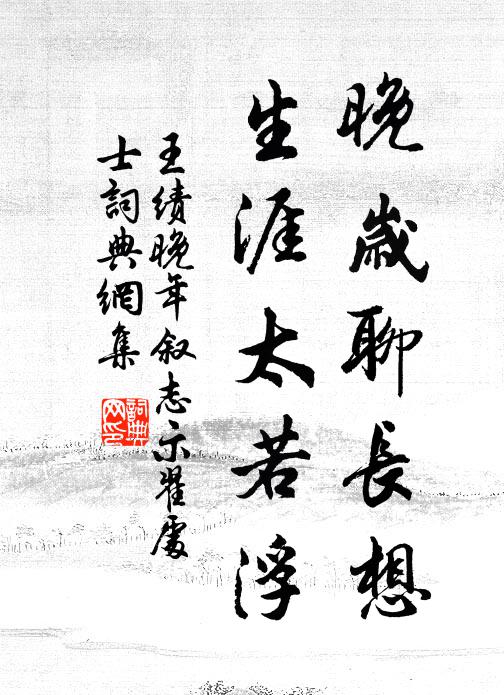 晚歲聊長想
生涯太若浮
王績晚年叙志示翟處
士詞典網集
詞典網印